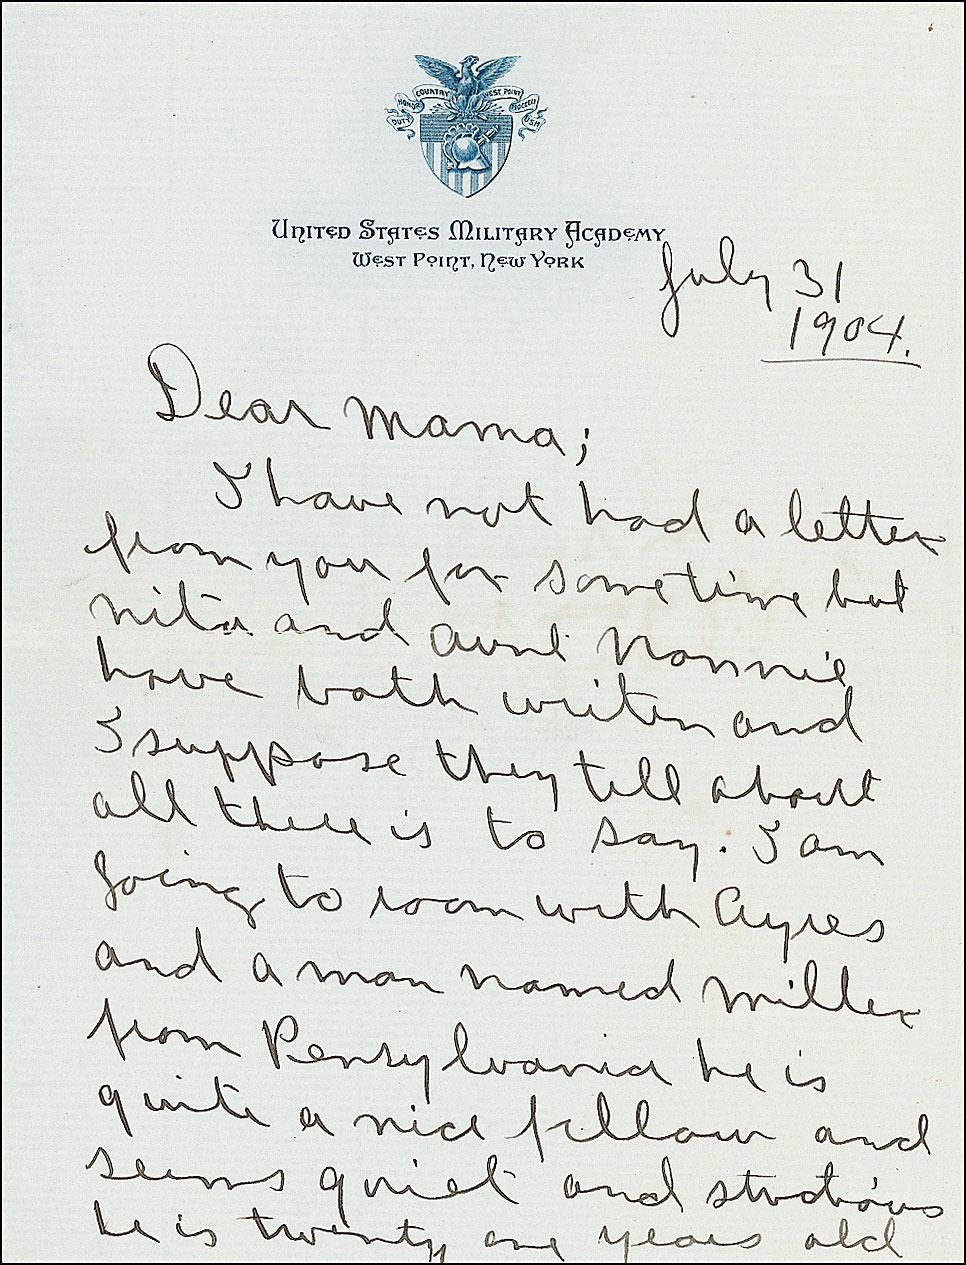 DUTY HONOR COUNTRY WEST POINT MDCCCII USMA
United States Military Academy
West Point, New York
July 31
1904.
Dear Mama;
I have not had a letter
from you for sometime but
nita and aunt Nannie
have both writen and
I suppose they tell about
all there is to say. I am
going to room with Ayres
and a man named Miller
from Pensylvania he is
quite a nice fellow and
seems quiet and studious
he is twenty one years old